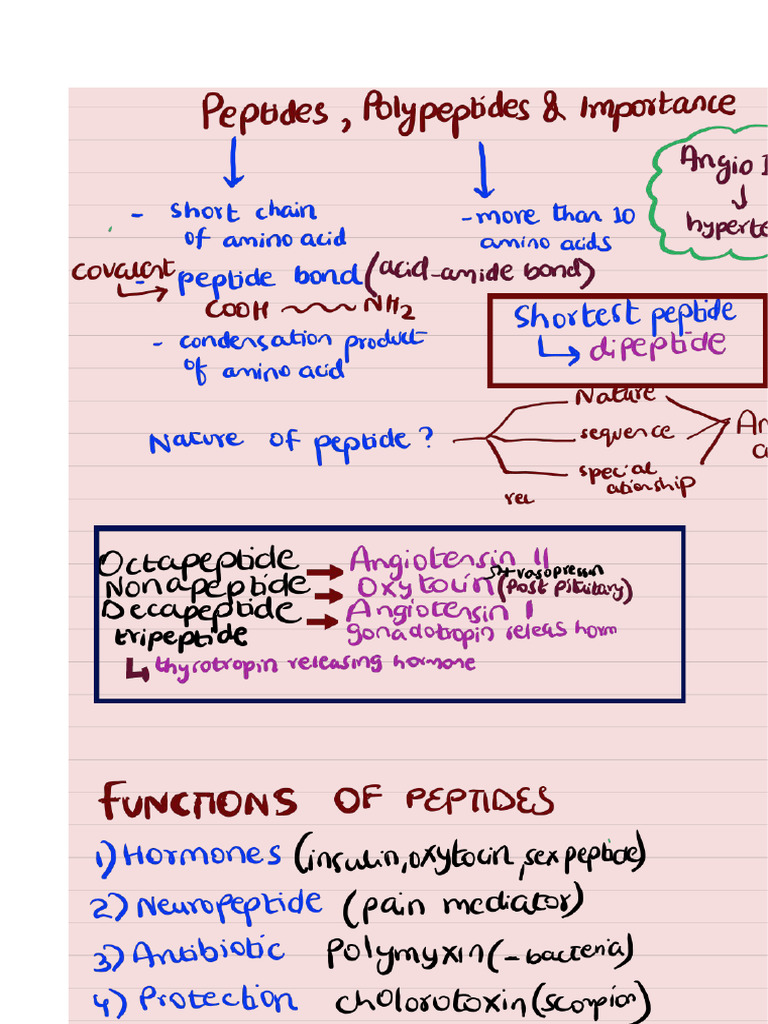 Peptides, Polypeptides & Importance
Angio I
hyperte
- short chain
of amino acid
- more than 10
amino acids
covalent
- peptide bond (acid-amide bond)
COOH NH2
- condensation product
of amino acid
shortest peptide
dipeptide
Nature of peptide?
Nature
sequence
special
rel ationship
An
a
Octapeptide → Angiotensin II
Nonapeptide → Oxytocin (Post pituitary)
vasopressin
Decapeptide → Angiotensin I
gonadotropin releas horm
tripeptide
↳ thyrotropin releasing hormone
FUNCTIONS OF PEPTIDES
1) Hormones (insulin, oxytocin, sex peptide)
2) Neuropeptide (pain mediator)
3) Antibiotic Polymyxin (- bacteria)
4) Protection cholorotoxin (scorpion)